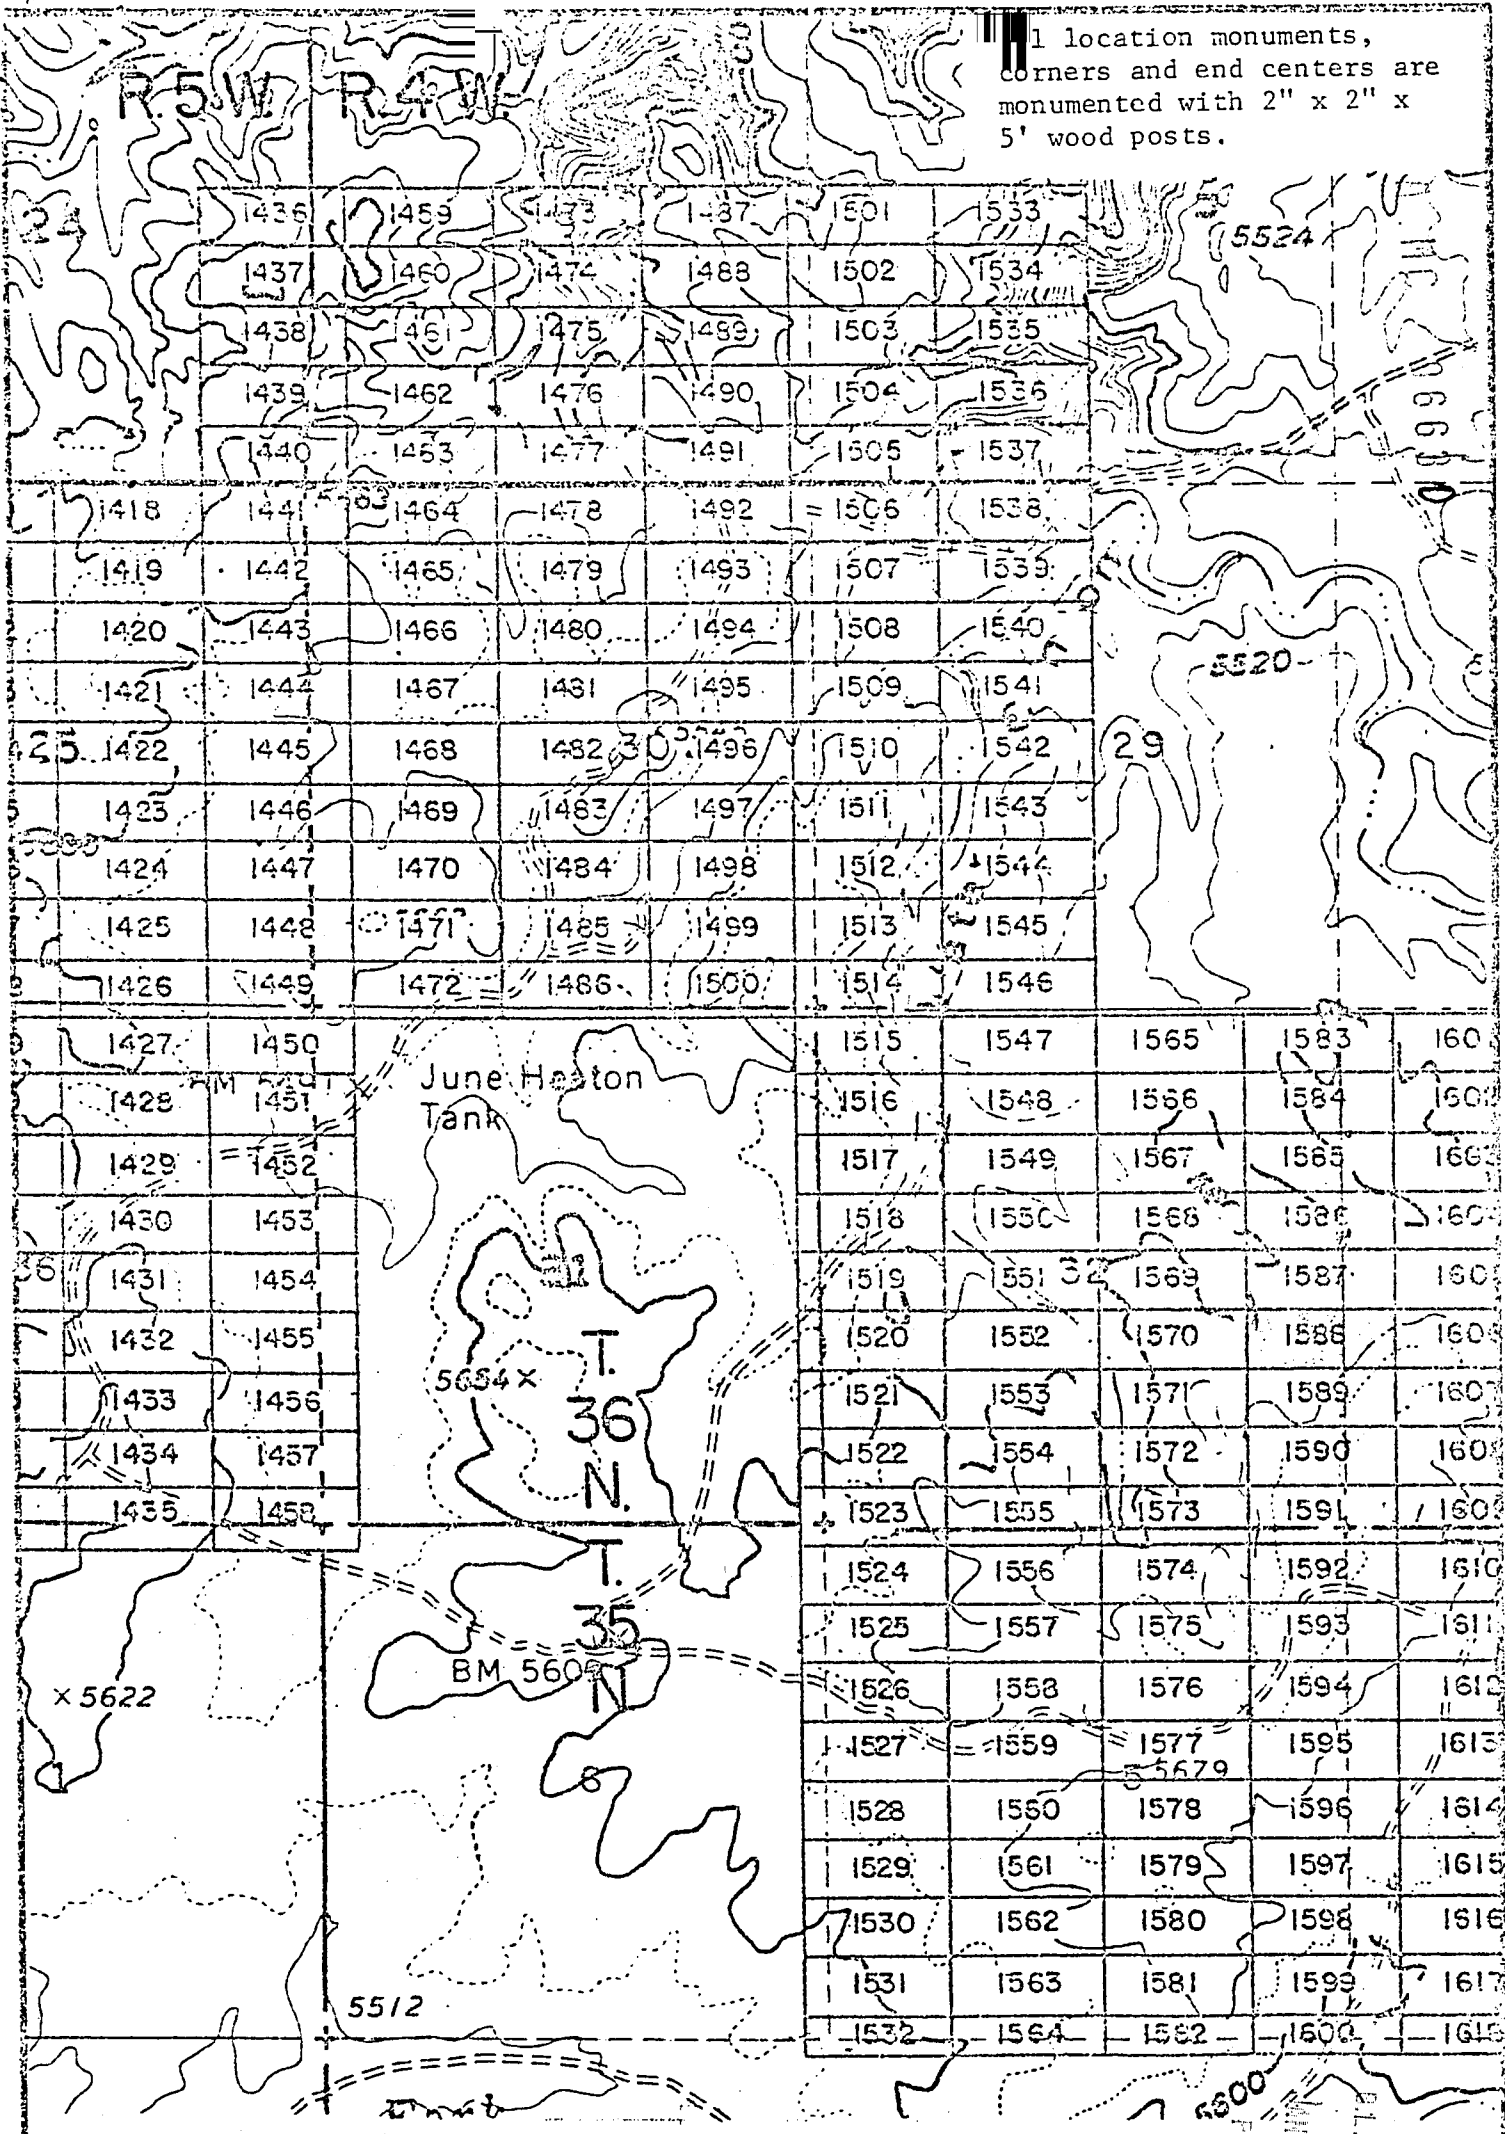 l location monuments,
corners and end centers are
monumented with 2" x 2" x
5' wood posts.
R.5W. R.4W.
24 1436 1459 1473 1487 1501 1533 5524
1437 1460 1474 1488 1502 1534
1438 1461 1475 1489 1503 1535
1439 1462 1476 1490 1504 1536
1440 1463 1477 1491 1505 1537
1418 1441 1464 1478 1492 1506 1538
1419 1442 1465 1479 1493 1507 1539
1420 1443 1466 1480 1494 1508 1540
5520
1421 1444 1467 1481 1495 1509 1541
25 1422 1445 1468 1482 30 1496 1510 1542 29
1423 1446 1469 1483 1497 1511 1543
1424 1447 1470 1484 1498 1512 1544
1425 1448 1471 1485 1499 1513 1545
1426 1449 1472 1486 1500 1514 1546
1427 1450 1515 1547 1565 1583 160
June Heaton
Tank
1428 1451 1516 1548 1566 1584 160
1429 1452 1517 1549 1567 1585 160
1430 1453 1518 1550 1568 1586 160
1431 1454 1519 1551 32 1569 1587 160
1432 1455 1520 1552 1570 1588 160
T.
36
N.
5654 ×
1433 1456 1521 1553 1571 1589 160
1434 1457 1522 1554 1572 1590 160
1435 1458 1523 1555 1573 1591 160
T.
35
N
1524 1556 1574 1592 1610
1525 1557 1575 1593 1611
BM 560
× 5622 1526 1558 1576 1594 161
1527 1559 1577 1595 1613
5 5679
6
1528 1560 1578 1596 1614
1529 1561 1579 1597 1615
1530 1562 1580 1598 1616
1531 1563 1581 1599 1617
5512
1532 1564 1582 1600 161
5600